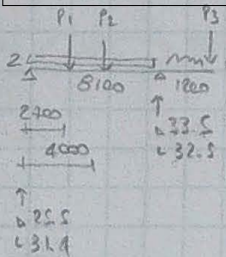 P1 P2 P3
2
8100 1200
2700
4000
D 33.5
L 32.5
D 25.5
L 31.4